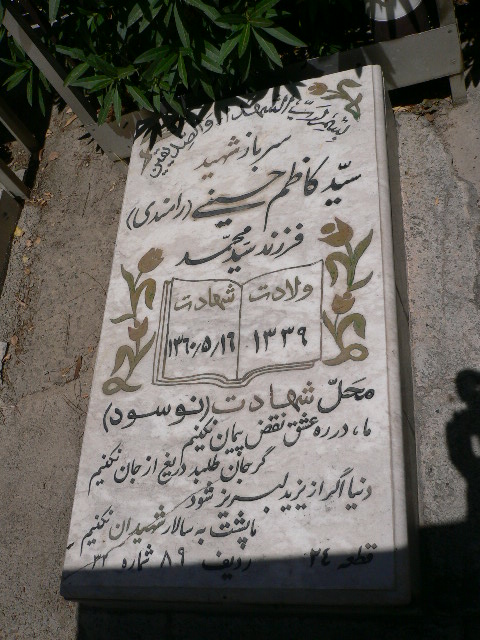 بسم رب الشهداء والصدیقین
سرباز شهید
سیّد کاظم حسینی (رامندی)
فرزند سیّد محمّد
ولادت
۱۳۳۹
شهادت
۱۳۶۰/۵/۱۶
محلّ شهادت (نوسود)
ما، در ره عشق نقض پیمان نکنیم
گر جان طلبد دریغ از جان نکنیم
دنیا اگر از یزید لبریز شود
ما پشت به سالار شهیدان نکنیم
قطعه ۲۴ ردیف ۸۹ شماره ۳۲